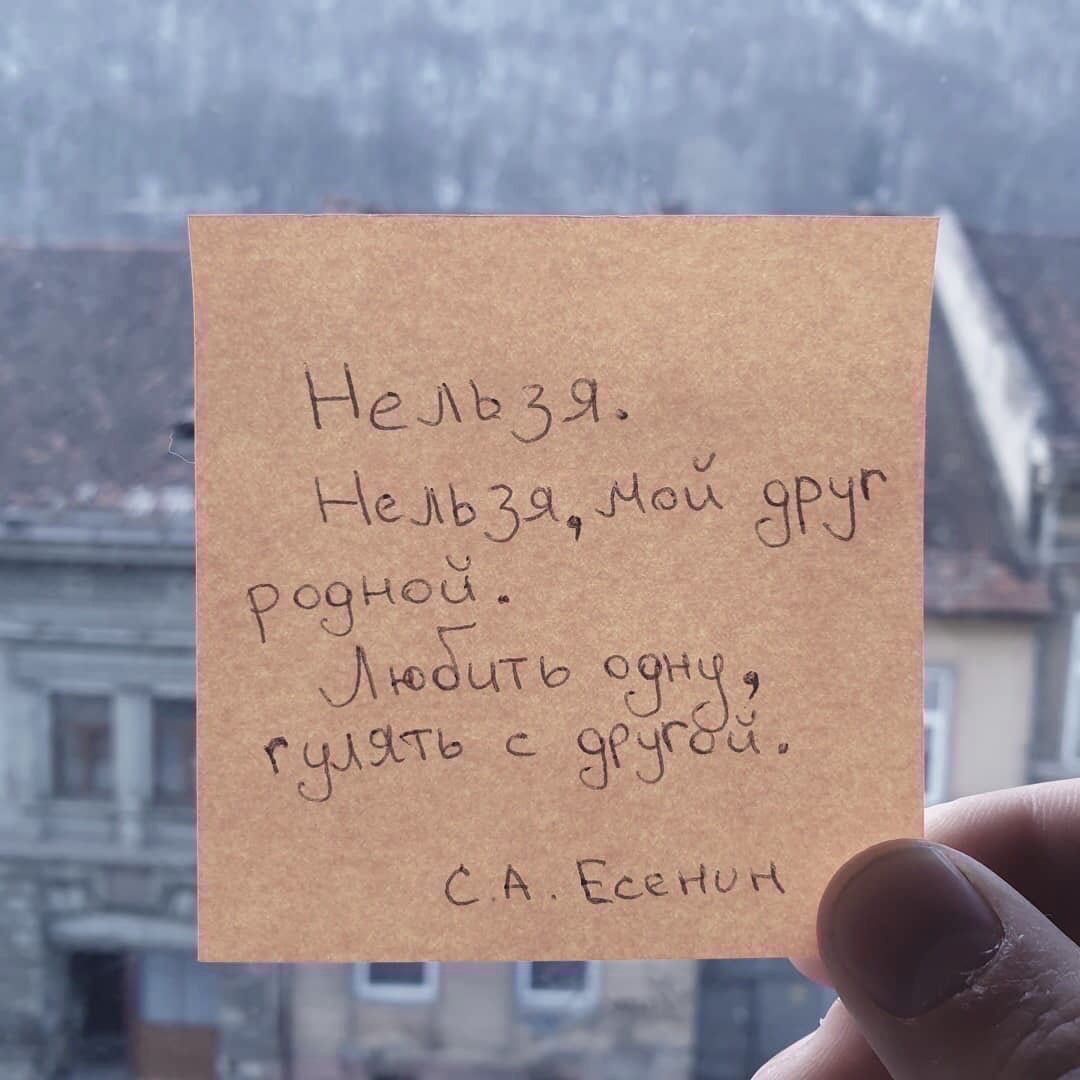 Нельзя.
Нельзя, мой друг
родной.
Любить одну,
гулять с другой.
С.А. Есенин